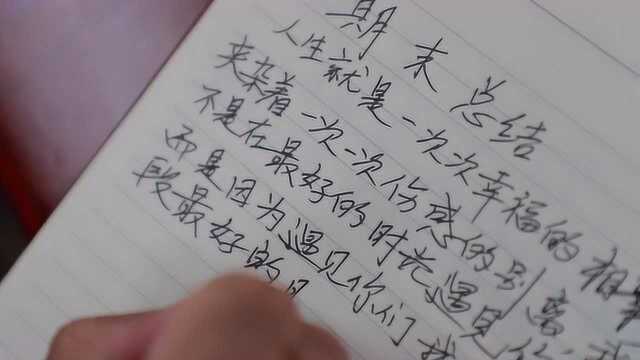 期末总结
人生就是一次次幸福的相
夹杂着一次次伤感的别离
不是在最好的时光遇见
而是因为遇见你们我
段最好的